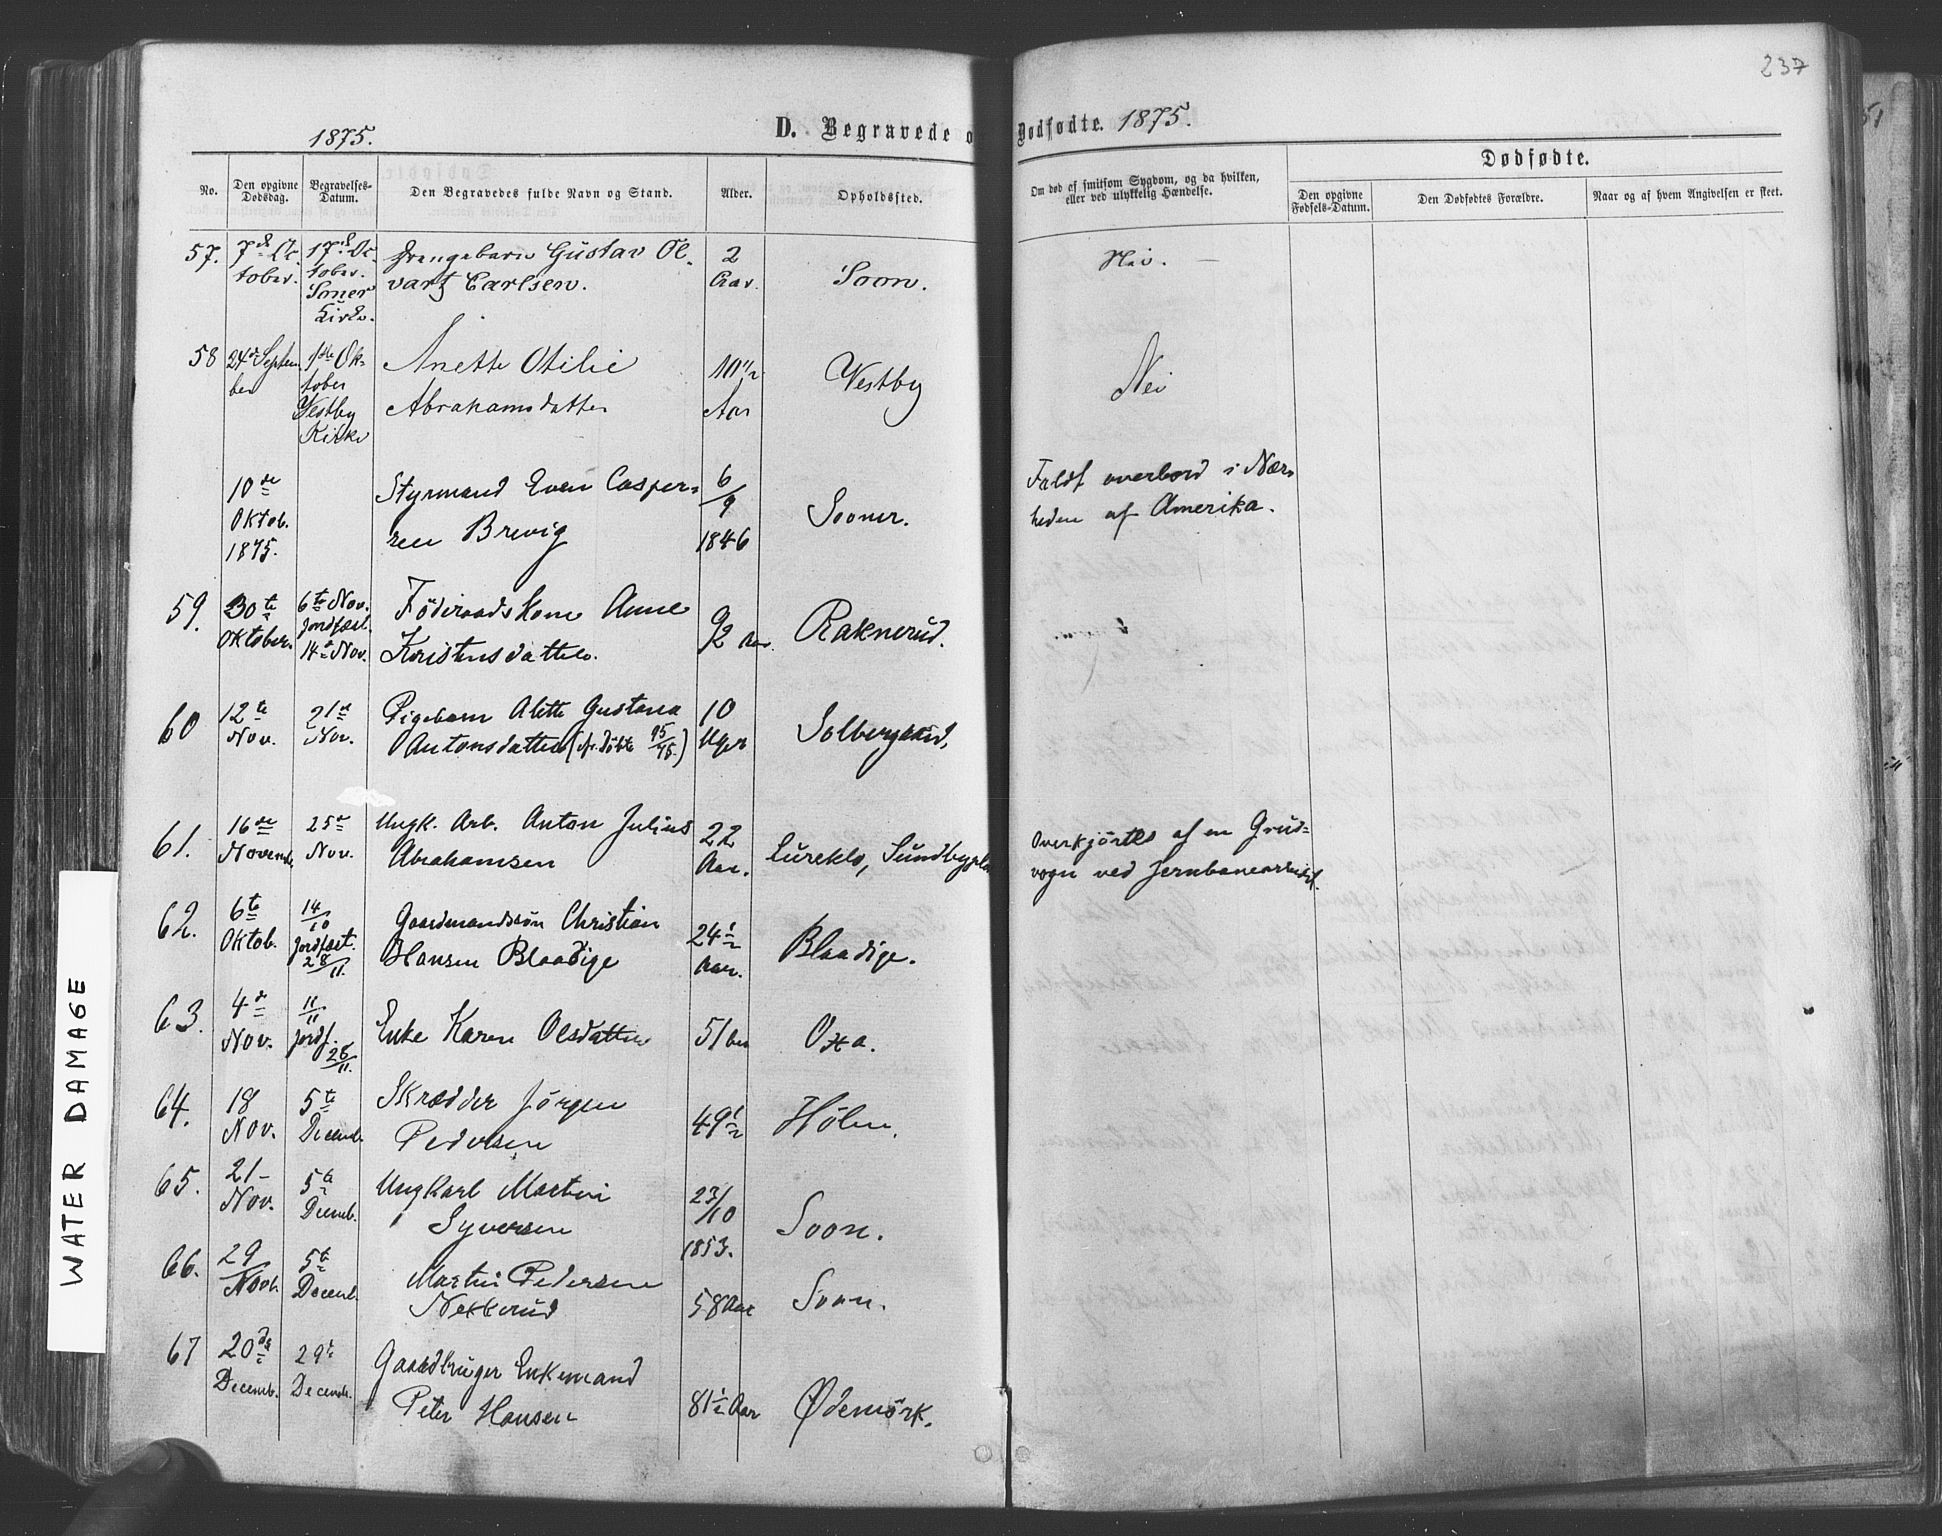 237
1875.
D. Begravede o
Dødfødte. 1875.
Dødfødte.
No.
Den opgivne Dødsdag.
Begravelses-Datum.
Den Begravedes fulde Navn og Stand.
Alder.
Opholdssted.
Om død af smitsom Sygdom, og da hvilken,
eller ved ulykkelig Hændelse.
Den opgivne
Fødsels-Datum.
Den Dødfødtes Forældre.
Naar og af hvem Angivelsen er skeet.
57. 7de Oc 17de Oc Drengebarn Gustav Ol 2
tober. tober. vart Carlsen. Aar. Soon. Nei.
Soner
Kirke.
58 24de Septem 1ste Ok Anette Otilie 10 1/2 Vestby Nei
ber tober Abrahamsdatter Aar
Vestby
Kirke
10de Styrmand Even Casper 6/9 Sooner. Faldt overbord i Nær
Oktob. sen Brevig 1846 heden af Amerika.
1875.
59. 30te 6te Nov. Föderaadskone Anne 92 Aar Raknerud.
Oktober. Jordfæst. Kristensdatter.
14de Nov.
60 12te 21de Pigebarn Alette Gustava 10
Nov. Nov. Antonsdatter Uger
61. 16de 25de Ungk. Arb. Anton Julius 22 Overkjörtes af en Grud-
Novemb Nov. Abrahamsen Aar. vogn ved Jernbanearbeidet.
62. 6te 14/10 Gaardmandssön Christian 24 1/2 Blaadige.
Oktob. Jordfæst. Hansen Blaadige Aar.
28/11.
63. 4de 11/11 Enke Karen Olsdatter 51
Nov. Jordf.
28/11.
64. 18 5te Skrædder Jörgen 49 1/2 Hölen.
Nov. Decemb. Pedersen
65. 21- 5te Ungkarl Martin 23/10 Soon.
Nov. Decemb. Syversen 1853.
66. 29 5te Martin Pedersen 58 Aar Soon.
Novb. Decemb. Nekkerud
67 20de 29de Gaardbruger Enkemand 81 1/2 Aar Ødemörk.
Decemb. Decemb. Peter Hansen
WATER DAMAGE
51